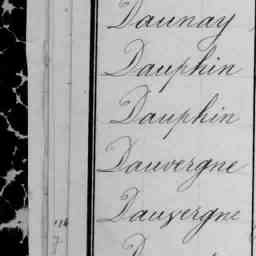 Daunay
Dauphin
Dauphin
Dauvergne
Dauvergne